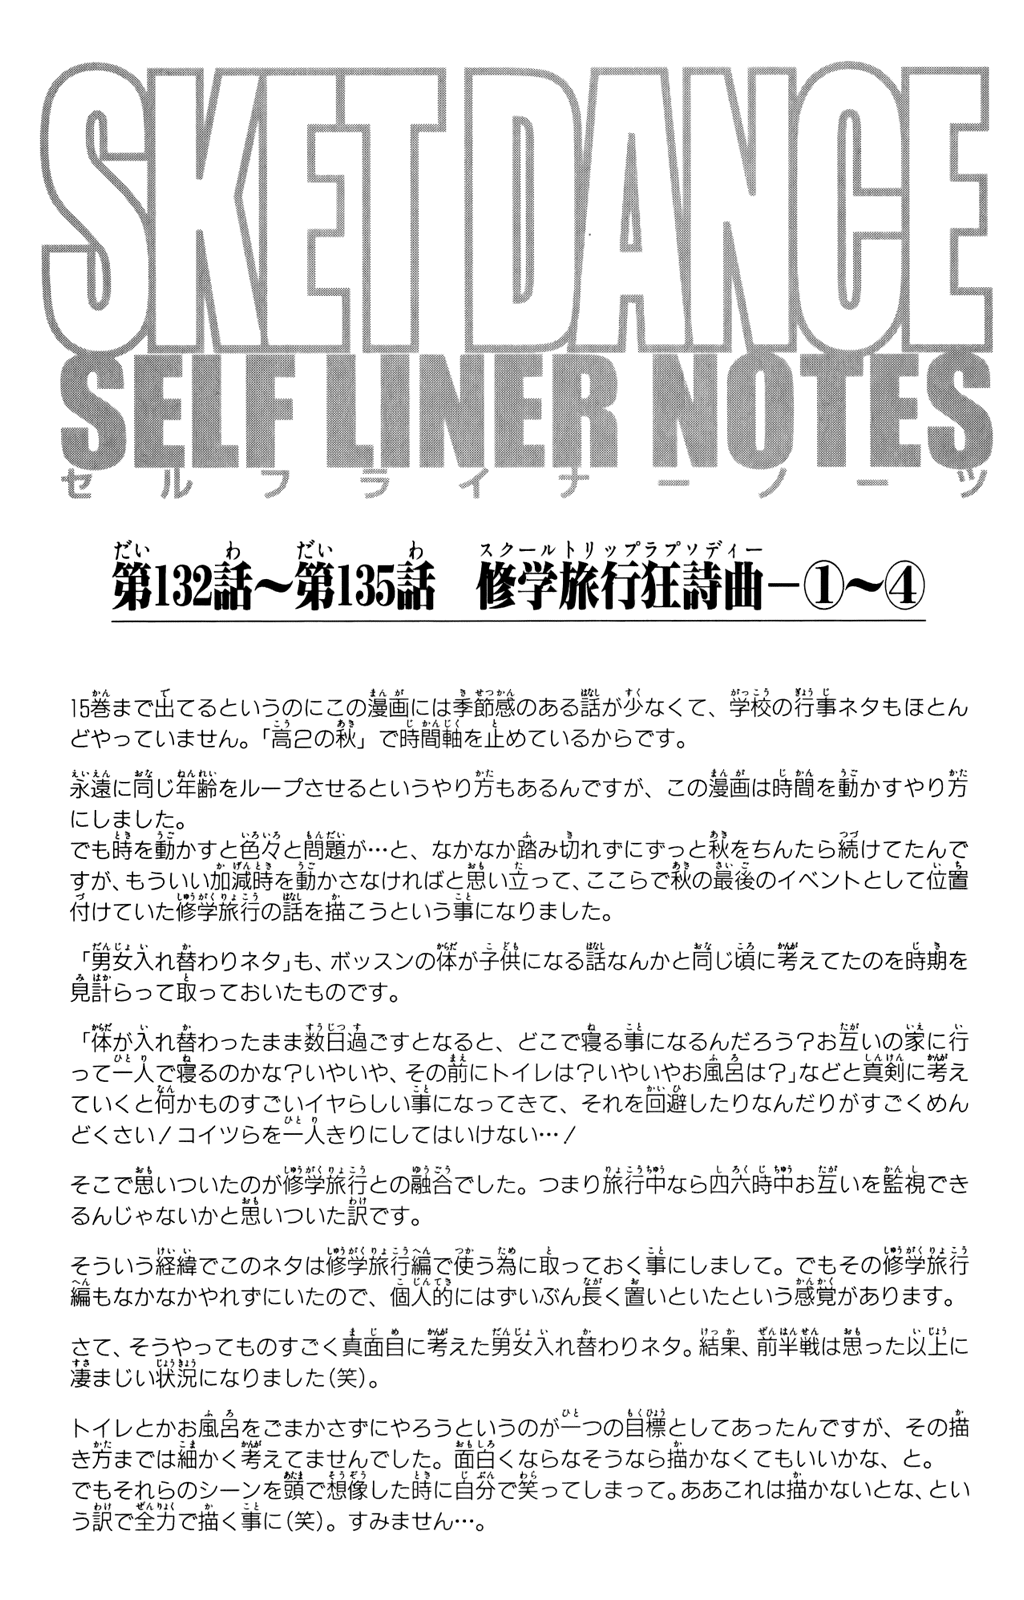 SKET DANCE
SELF LINER NOTES
セルフライナーノーツ
第132話〜第135話　修学旅行狂詩曲－①〜④
15巻まで出てるというのにこの漫画には季節感のある話が少なくて、学校の行事ネタもほとん
どやっていません。「高2の秋」で時間軸を止めているからです。
永遠に同じ年齢をループさせるというやり方もあるんですが、この漫画は時間を動かすやり方
にしました。
でも時を動かすと色々と問題が…と、なかなか踏み切れずにずっと秋をちんたら続けてたんで
すが、もういい加減時を動かさなければと思い立って、ここらで秋の最後のイベントとして位置
付けていた修学旅行の話を描こうという事になりました。
「男女入れ替わりネタ」も、ボッスンの体が子供になる話なんかと同じ頃に考えてたのを時期を
見計らって取っておいたものです。
「体が入れ替わったまま数日過ごすとなると、どこで寝る事になるんだろう？お互いの家に行
って一人で寝るのかな？いやいや、その前にトイレは？いやいやお風呂は？」などと真剣に考え
ていくと何かものすごいイヤらしい事になってきて、それを回避したりなんだりがすごくめん
どくさい！コイツらを一人きりにしてはいけない…！
そこで思いついたのが修学旅行との融合でした。つまり旅行中なら四六時中お互いを監視でき
るんじゃないかと思いついた訳です。
そういう経緯でこのネタは修学旅行編で使う為に取っておく事にしまして。でもその修学旅行
編もなかなかやれずにいたので、個人的にはずいぶん長く置いといたという感覚があります。
さて、そうやってものすごく真面目に考えた男女入れ替わりネタ。結果、前半戦は思った以上に
凄まじい状況になりました（笑）。
トイレとかお風呂をごまかさずにやろうというのが一つの目標としてあったんですが、その描
き方までは細かく考えてませんでした。面白くならなそうなら描かなくてもいいかな、と。
でもそれらのシーンを頭で想像した時に自分で笑ってしまって。ああこれは描かないとな、とい
う訳で全力で描く事に（笑）。すみません…。